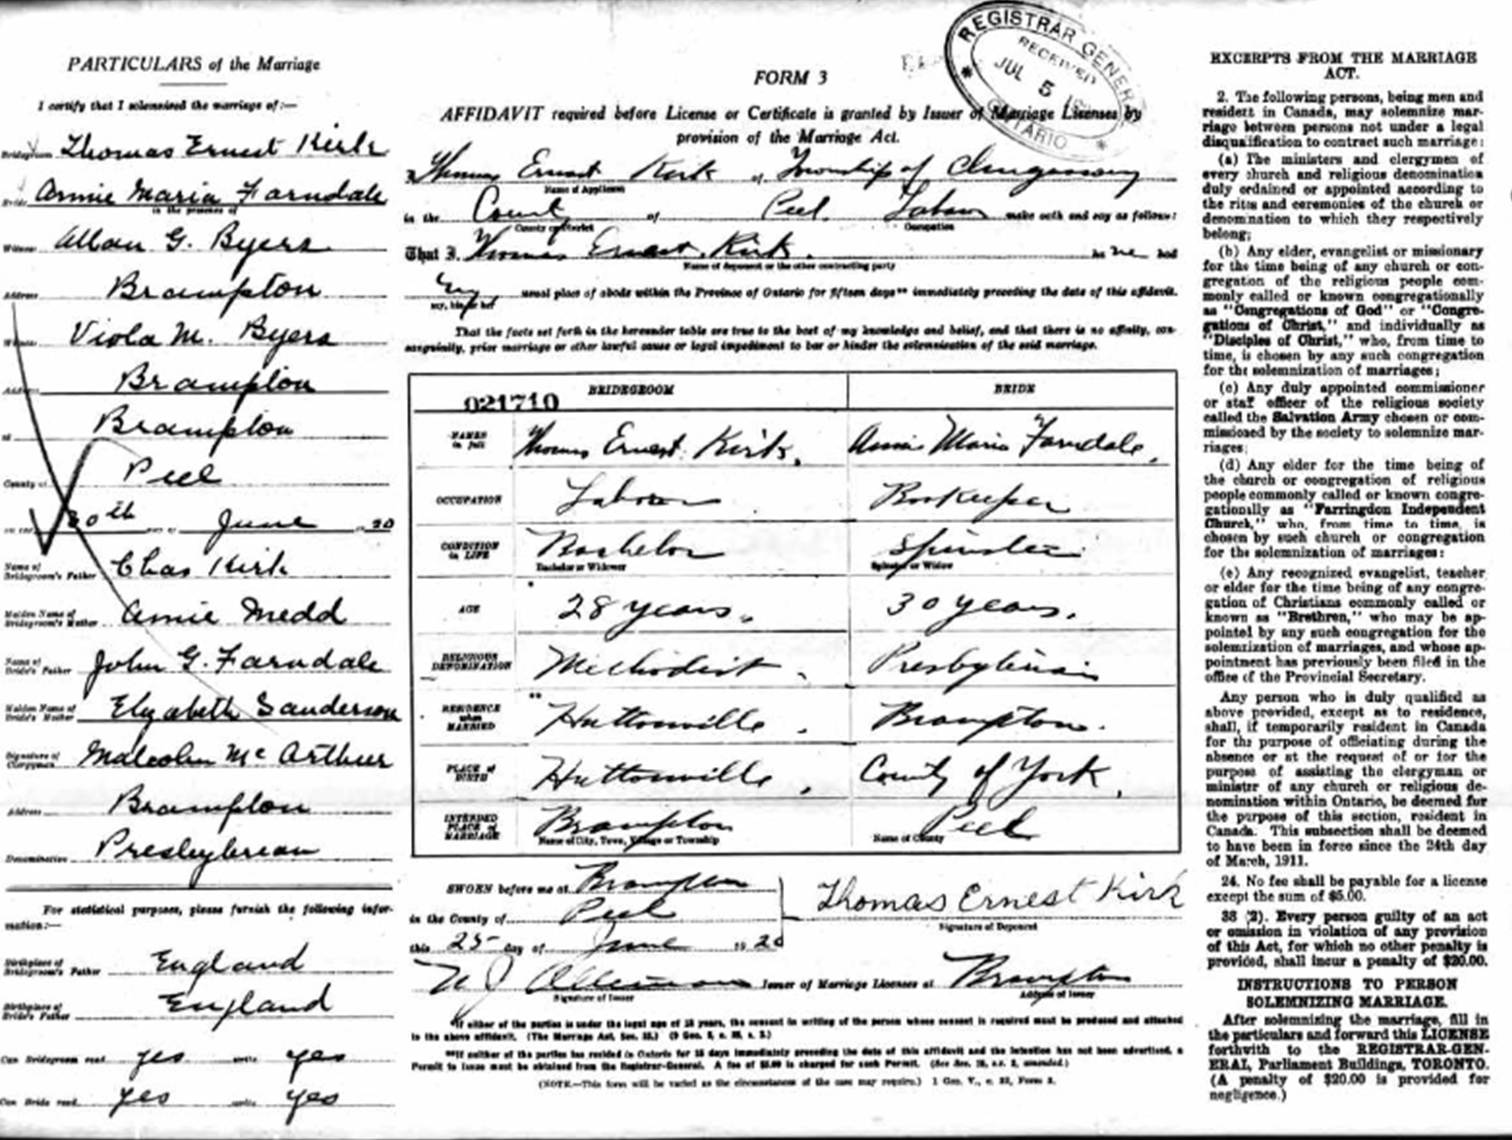 PARTICULARS of the Marriage
I certify that I solemnized the marriage of:—
Bridegroom Thomas Ernest Kirk
Bride Annie Maria Farndale
in the presence of
Witness Allan G. Byers
Address Brampton
Witness Viola M. Byers
Address Brampton
at Brampton
County of Peel
30th day of June 20
Name of Bridegroom's Father Chas Kirk
Maiden Name of Bridegroom's Mother Annie Medd
Name of Bride's Father John G. Farndale
Maiden Name of Bride's Mother Elyabeth Sanderson
Signature of Clergyman Malcolm Mc Arthur
Address Brampton
Denomination Presbyterian
For statistical purposes, please furnish the following infor-
mation:—
Birthplace of Bridegroom's Father England
Birthplace of Bride's Father England
Can Bridegroom read yes write yes
Can Bride read yes write yes
REGISTRAR GENERAL
RECEIVED
JUL 5
ONTARIO
FORM 3
AFFIDAVIT required before License or Certificate is granted by Issuer of Marriage Licenses by
provision of the Marriage Act.
Thomas Ernest Kirk of Township of Chinguacousy
Name of Applicant
in the County of Peel Labour make oath and say as follows:
County or District Occupation
That I, Thomas Ernest Kirk.
Name of deponent or the other contracting party
my usual place of abode within the Province of Ontario for fifteen days** immediately preceding the date of this affidavit.
my, his or her
That the facts set forth in the hereunder table are true to the best of my knowledge and belief, and that there is no affinity, con-
sanguinity, prior marriage or other lawful cause or legal impediment to bar or hinder the solemnization of the said marriage.
BRIDEGROOM BRIDE
021710
NAMES in full Thomas Ernest Kirk. Annie Maria Farndale.
OCCUPATION Labour Bookeeper
CONDITION in LIFE Bachelor Spinster
Bachelor or Widower Spinster or Widow
AGE 28 years. 30 years.
RELIGIOUS DENOMINATION Methodist. Presbyterian
RESIDENCE when MARRIED Huttonville. Brampton.
PLACE of BIRTH Huttonville. County of York.
INTENDED PLACE of MARRIAGE Brampton Peel
Name of City, Town, Village or Township Name of County
SWORN before me at Brampton
in the County of Peel
this 25 day of June 1920
Thomas Ernest Kirk
Signature of Deponent
Issuer of Marriage Licenses at Brampton
Signature of Issuer Address of Issuer
*If either of the parties is under the legal age of 18 years, the consent in writing of the person whose consent is required must be produced and attached
to the above affidavit. (The Marriage Act, Sec. 15.)
**If neither of the parties has resided in Ontario for 15 days immediately preceding the date of this affidavit and the intention has not been advertised, a
Permit to Issue must be obtained from the Registrar-General. A fee of $5.00 is charged for each Permit.
(NOTE.—This form will be varied as the circumstances of the case may require.) 1 Geo. V., c. 32, Form 3.
EXCERPTS FROM THE MARRIAGE
ACT.
2. The following persons, being men and
resident in Canada, may solemnize mar-
riage between persons not under a legal
disqualification to contract such marriage:
(a) The ministers and clergymen of
every church and religious denomination
duly ordained or appointed according to
the rites and ceremonies of the church or
denomination to which they respectively
belong;
(b) Any elder, evangelist or missionary
for the time being of any church or con-
gregation of the religious people com-
monly called or known congregationally
as "Congregations of God" or "Congre-
gations of Christ," and individually as
"Disciples of Christ," who, from time to
time, is chosen by any such congregation
for the solemnization of marriages;
(c) Any duly appointed commissioner
or staff officer of the religious society
called the Salvation Army chosen or com-
missioned by the society to solemnize mar-
riages;
(d) Any elder for the time being of
the church or congregation of religious
people commonly called or known congre-
gationally as "Farringdon Independent
Church," who, from time to time, is
chosen by such church or congregation
for the solemnization of marriages:
(e) Any recognized evangelist, teacher
or elder for the time being of any congre-
gation of Christians commonly called or
known as "Brethren," who may be ap-
pointed by any such congregation for the
solemnization of marriages, and whose ap-
pointment has previously been filed in the
office of the Provincial Secretary.
Any person who is duly qualified as
above provided, except as to residence,
shall, if temporarily resident in Canada
for the purpose of officiating during the
absence or at the request of or for the
purpose of assisting the clergyman or
minister of any church or religious de-
nomination within Ontario, be deemed for
the purpose of this section, resident in
Canada. This subsection shall be deemed
to have been in force since the 24th day
of March, 1911.
24. No fee shall be payable for a license
except the sum of $5.00.
38 (2). Every person guilty of an act
or omission in violation of any provision
of this Act, for which no other penalty is
provided, shall incur a penalty of $20.00.
INSTRUCTIONS TO PERSON
SOLEMNIZING MARRIAGE.
After solemnizing the marriage, fill in
the particulars and forward this LICENSE
forthwith to the REGISTRAR-GEN-
ERAL, Parliament Buildings, TORONTO.
(A penalty of $20.00 is provided for
negligence.)